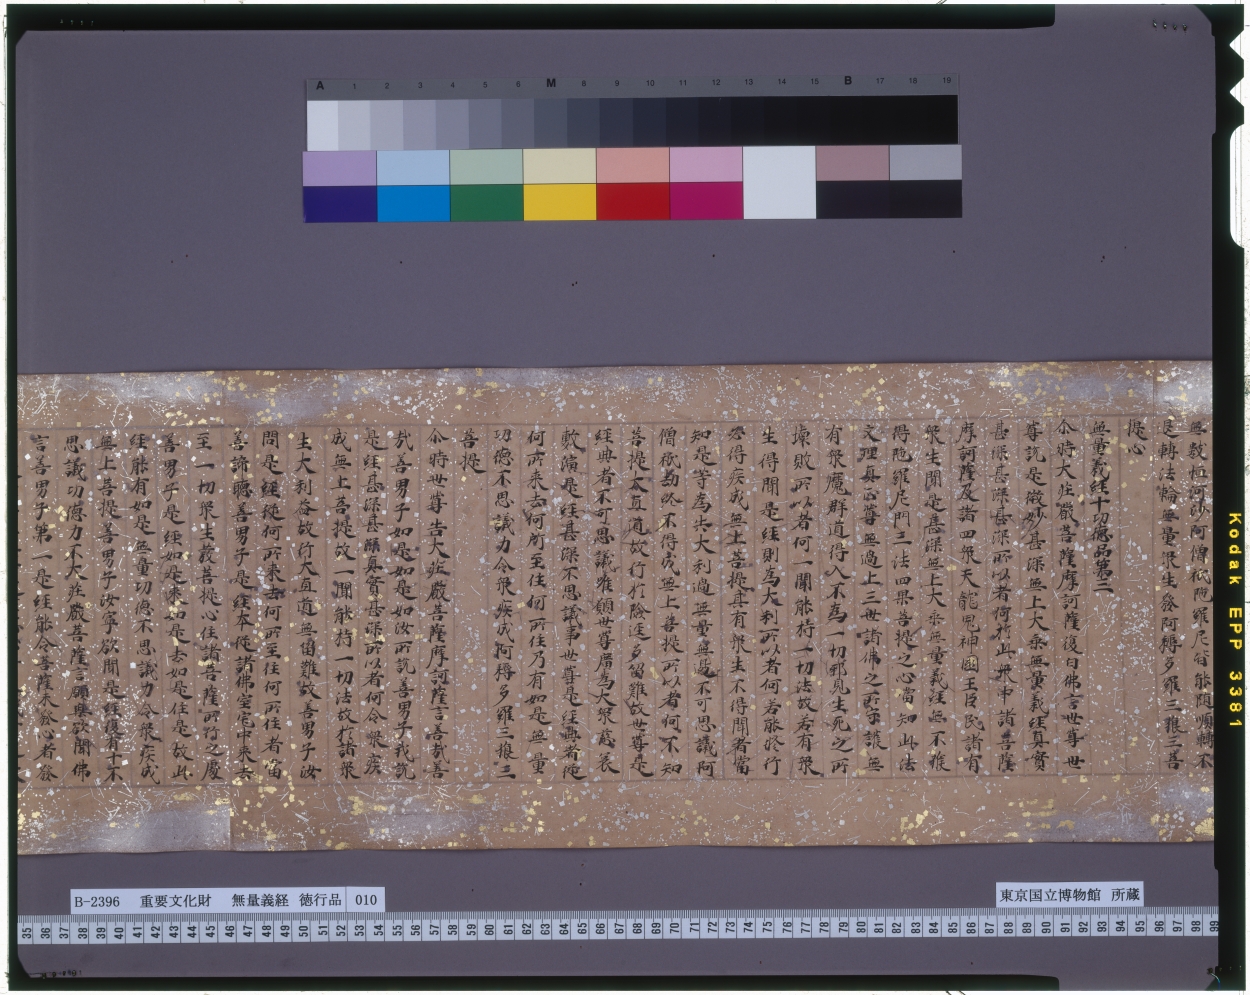 A 1 2 3 4 5 6 M 8 9 10 11 12 13 14 15 B 17 18 19
無數恒河沙阿僧祇陀羅尼句能隨順轉不
退轉法輪無量衆生發阿耨多羅三藐三菩
提心
無量義經十功德品第三
尒時大莊嚴菩薩摩訶薩復白佛言世尊世
尊說是微妙甚深無上大乘無量義經真實
甚深甚深甚深所以者何於此衆中諸菩薩
摩訶薩及諸四衆天龍鬼神國王臣民諸有
衆生聞是甚深無上大乘無量義經無不獲
得陀羅尼門三法四果菩提之心當知此法
文理真正尊無過上三世諸佛之所守護無
有衆魔群道得入不為一切邪見生死之所
壞敗所以者何一聞能持一切法故若有衆
生得聞是經則為大利所以者何若能修行
必得疾成無上菩提其有衆生不得聞者當
知是等為失大利過無量無邊不可思議阿
僧祇劫終不得成無上菩提所以者何不知
菩提大直道故行於險逕多留難故世尊是
經典者不可思議唯願世尊廣為大衆慈哀
敷演是經甚深不思議事世尊是經典者從
何所来去何所至住何所住乃有如是無量
功德不思議力令衆疾成阿耨多羅三藐三
菩提
尒時世尊告大莊嚴菩薩摩訶薩言善哉善
哉善男子如是如是如汝所說善男子我說
是經甚深甚深真實甚深所以者何令衆疾
成無上菩提故一聞能持一切法故於諸衆
生大利益故行大直道無留難故善男子汝
問是經從何所来去何所至住何所住者當
善諦聽善男子是經本從諸佛室宅中来去
至一切衆生發菩提心住諸菩薩所行之處
善男子是經如是来如是去如是住是故此
經能有如是無量功德不思議力令衆疾成
無上菩提善男子汝寧欲聞是經復有十不
思議功德力不大莊嚴菩薩言願樂欲聞佛
言善男子第一是經能令菩薩未發心者發
B-2396 重要文化財 無量義経 徳行品 010
東京国立博物館 所蔵
35 36 37 38 39 40 41 42 43 44 45 46 47 48 49 50 51 52 53 54 55 56 57 58 59 60 61 62 63 64 65 66 67 68 69 70 71 72 73 74 75 76 77 78 79 80 81 82 83 84 85 86 87 88 89 90 91 92 93 94 95 96 97 98 99
Kodak EPP 3381